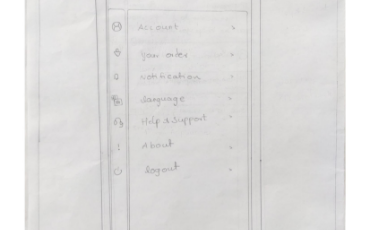 Account
Your order
Notification
Language
Help & Support
About
Logout